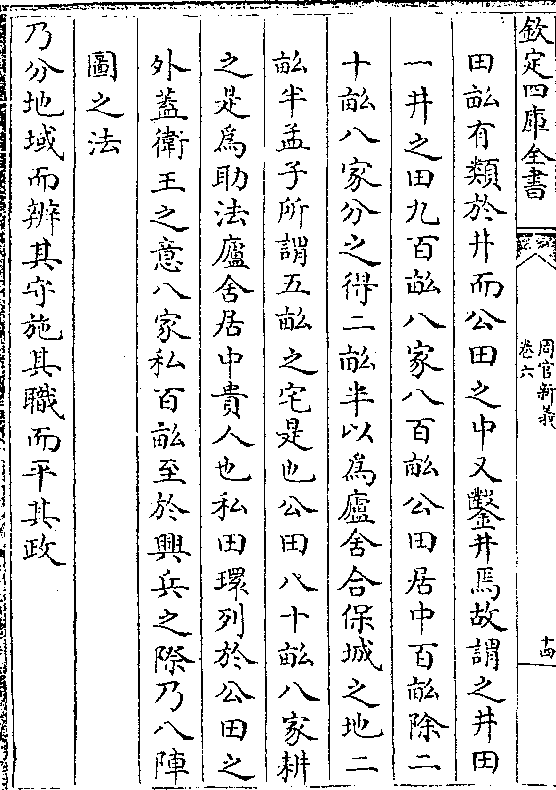 欽定四庫全書
周官新義
卷六
十四
田畝有類於井而公田之中又鑿井焉故謂之井田
一井之田九百畝八家八百畝公田居中百畝除二
十畝八家分之得二畝半以為廬舍合保城之地二
畝半孟子所謂五畝之宅是也公田八十畝八家耕
之是為助法廬舍居中貴人也私田環列於公田之
外蓋衛王之意八家私百畝至於興兵之際乃八陣
圖之法
乃分地域而辨其守施其職而平其政